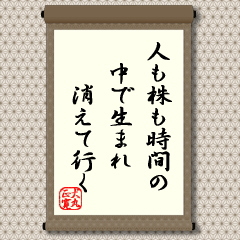 人も株も時間の
中で生まれ
消えて行く